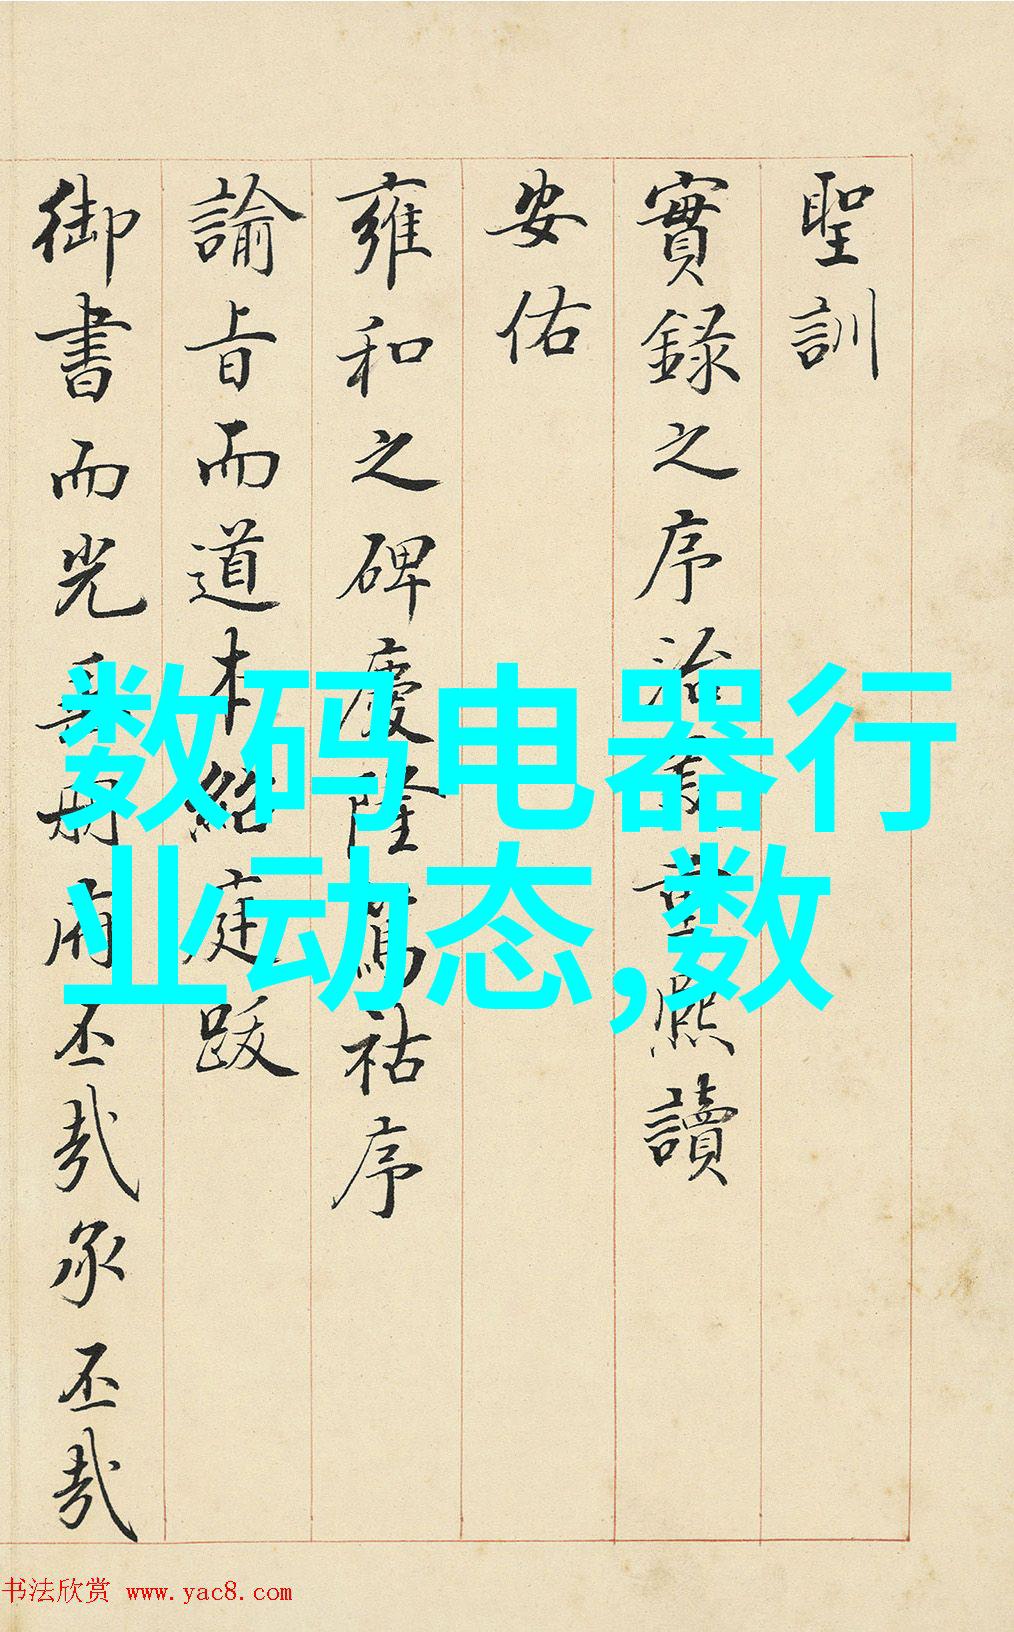 聖訓
實録之序治
重熙讀
安佑
雍和之碑慶隆篤祜序
諭旨而道本紹庭跋
御書而光
丕哉承丕哉
数码电器行
业动态,数
书法欣赏 www.yac8.com